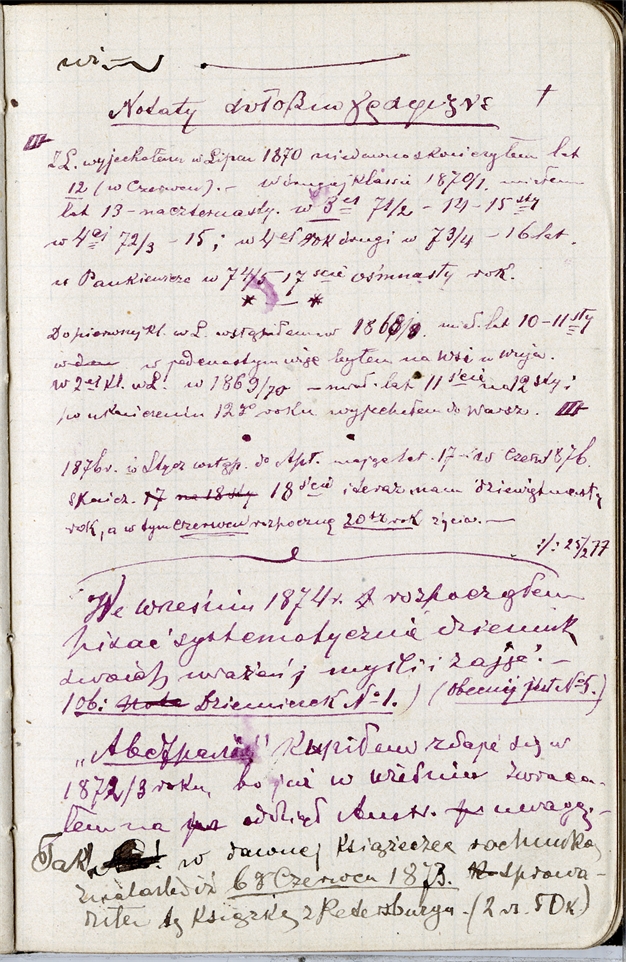 Notaty autobiograficzne †
Z L. wyjechałem w Lipcu 1870 niedawno skończyłem lat
12 (w Czerwcu). – w drugiej klassie 1870/1. miałem
lat 13 – na czternasty. w 3ej 71/2 – 14 – 15sty
w 4ej 72/3 – 15; w 4ej rok drugi w 73/4 – 16 lat.
u Pankiewicza w 74/5 17ście ośmnasty rok.
* – *
Do pierwszej kl. w L. wstąpiłem w 1868/9. miał. lat 10 – 11sty
w jedenastym więc byłem na wsi u wuja.
w 2ej kl. w L. w 1869/70 – miał. lat 11ście na 12sty i
po ukończeniu 12go roku wyjechałem do Warsz.
1876 r. w Stycz wstąp. do Apt. mając lat 17 – i do Czerw 1876.
skończ. 17 na 18sty 18ście i teraz mam dziewiętnasty
rok, a w tym Czerwcu rozpocznę 20sty rok życia. –
:/: 25/2 77
We wrześniu 1874 r. rozpocząłem
pisać systematycznie dziennik
swoich wrażeń, myśli i zajęć. –
(ob: Dzienniczek No 1.) (obecnej jest No 5.)
kupiłem zdaje się w
1872/3 roku, bo już w Wiedniu zwraca-
łem na oddział Austr. uwagę. –
Tak! w dawnej książeczce rachunkow.
znalazłem iż 6go Czerwca 1873. sprowa-
dziłem tę książkę z Petersburga – (2 rs. 50 k)